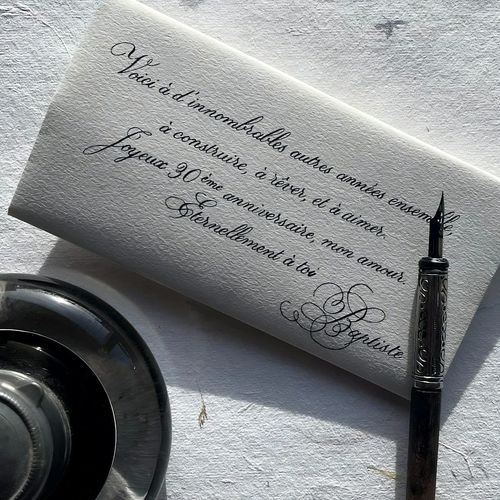 Voici à d'innombrables autres années ensemble,
à construire, à rêver, et à aimer.
Joyeux 30 ème anniversaire, mon amour.
Eternellement à toi
Baptiste